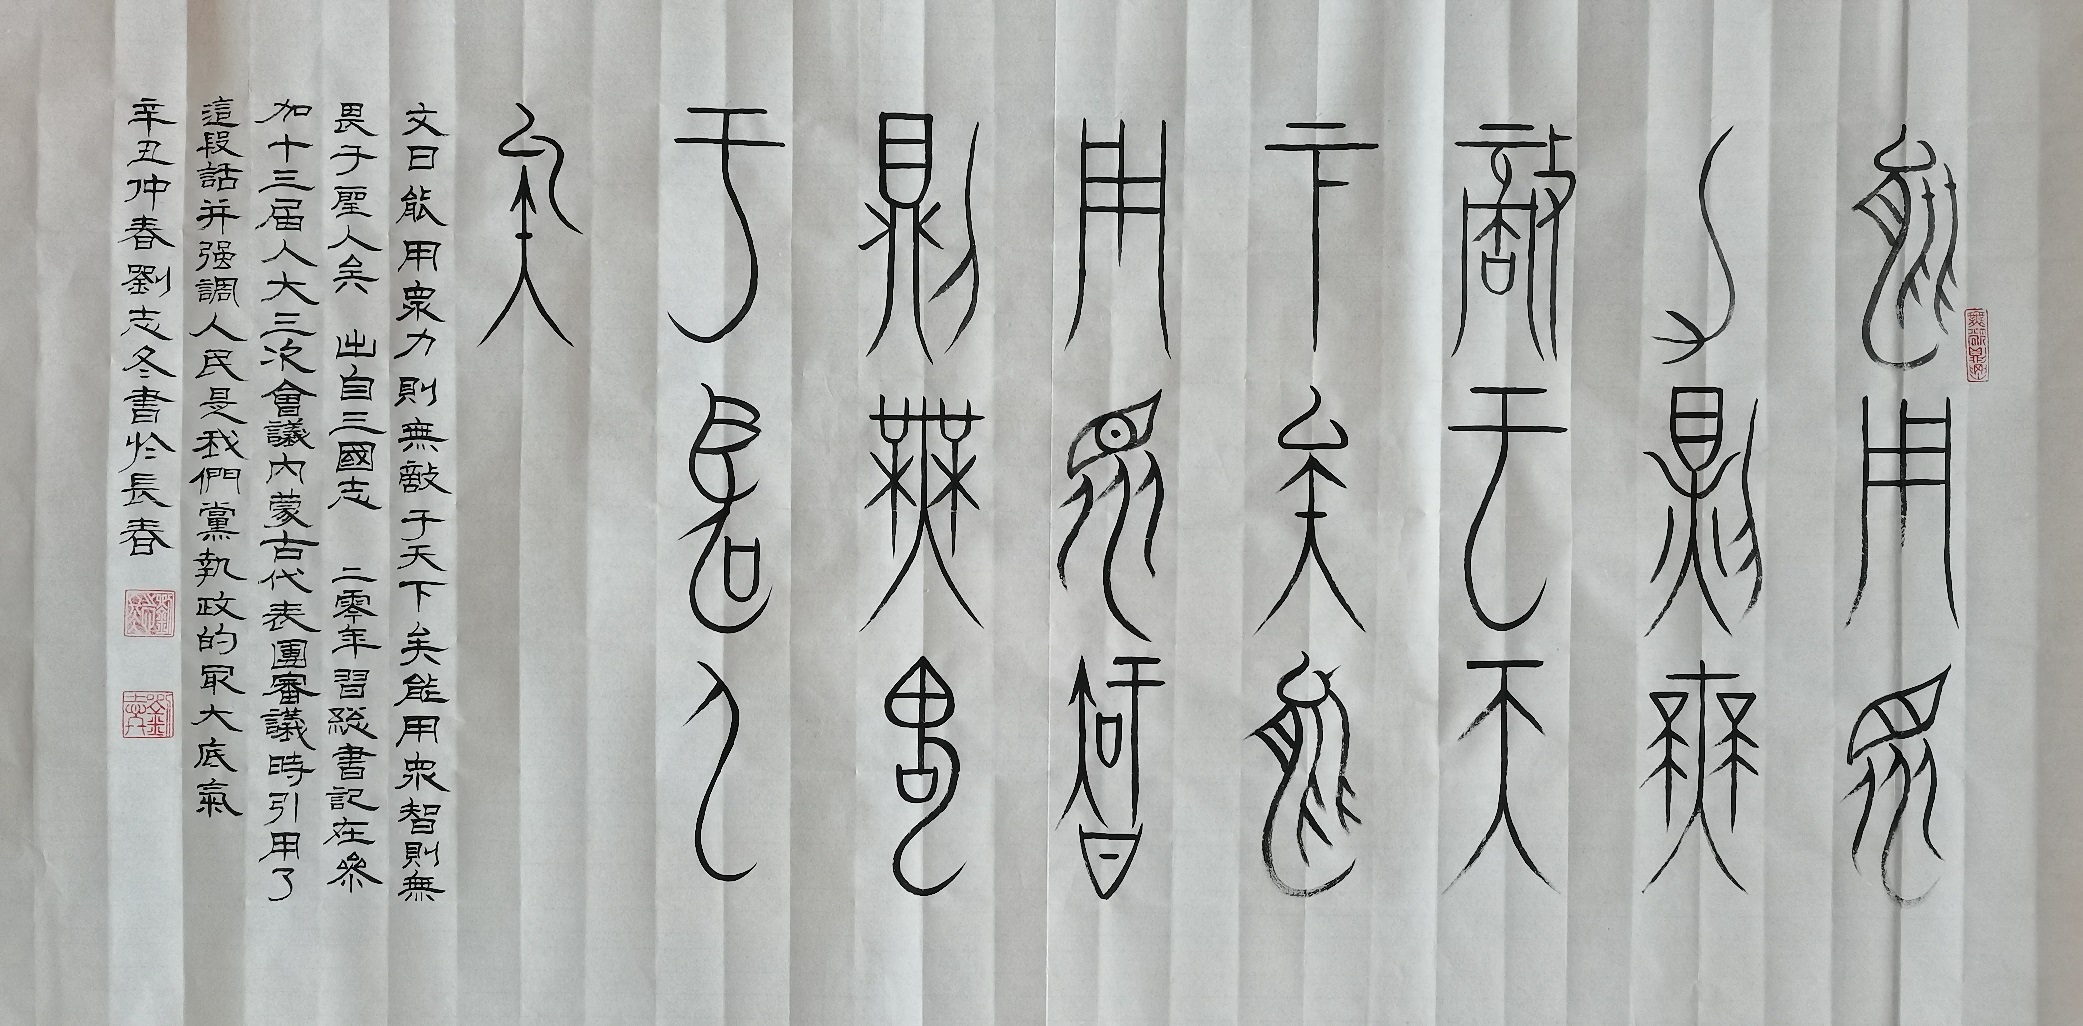 能用眾
力則無
敵于天
下矣能
用眾智
則無畏
于聖人
矣
文曰能用眾力則無敵于天下矣能用眾智則無
畏于聖人矣 出自三國志 二零年習總書記在參
加十三屆人大三次會議內蒙古代表團審議時引用了
這段話并强調人民是我們黨執政的最大底氣
辛丑仲春劉志冬書於長春